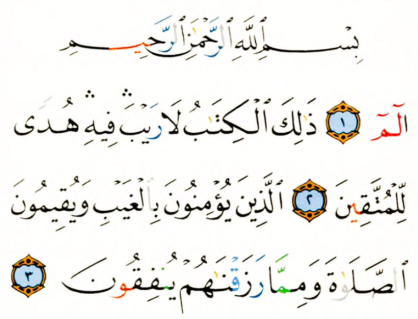 بِسْمِ ٱللَّهِ ٱلرَّحْمَٰنِ ٱلرَّحِيمِ
الٓمٓ ١ ذَٰلِكَ ٱلْكِتَٰبُ لَا رَيْبَ ۛ فِيهِ ۛ هُدًى
لِّلْمُتَّقِينَ ٢ ٱلَّذِينَ يُؤْمِنُونَ بِٱلْغَيْبِ وَيُقِيمُونَ
ٱلصَّلَوٰةَ وَمِمَّا رَزَقْنَٰهُمْ يُنفِقُونَ ٣